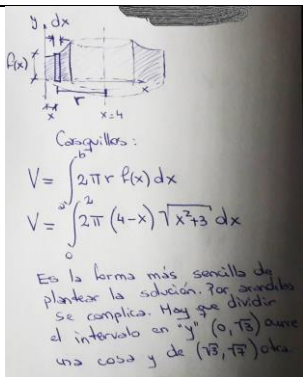 y
dx
f(x)
r
x
x
x=4
Casquillos:
V = ∫ₐᵇ 2πr f(x) dx
V = ∫₀² 2π (4-x) √(x²+3) dx
Es la forma más sencilla de
plantear la solución. Por arandelas
se complica. Hay que dividir
el intervalo en "y" (0, √3)
una cosa y de (√3, √7) otra.